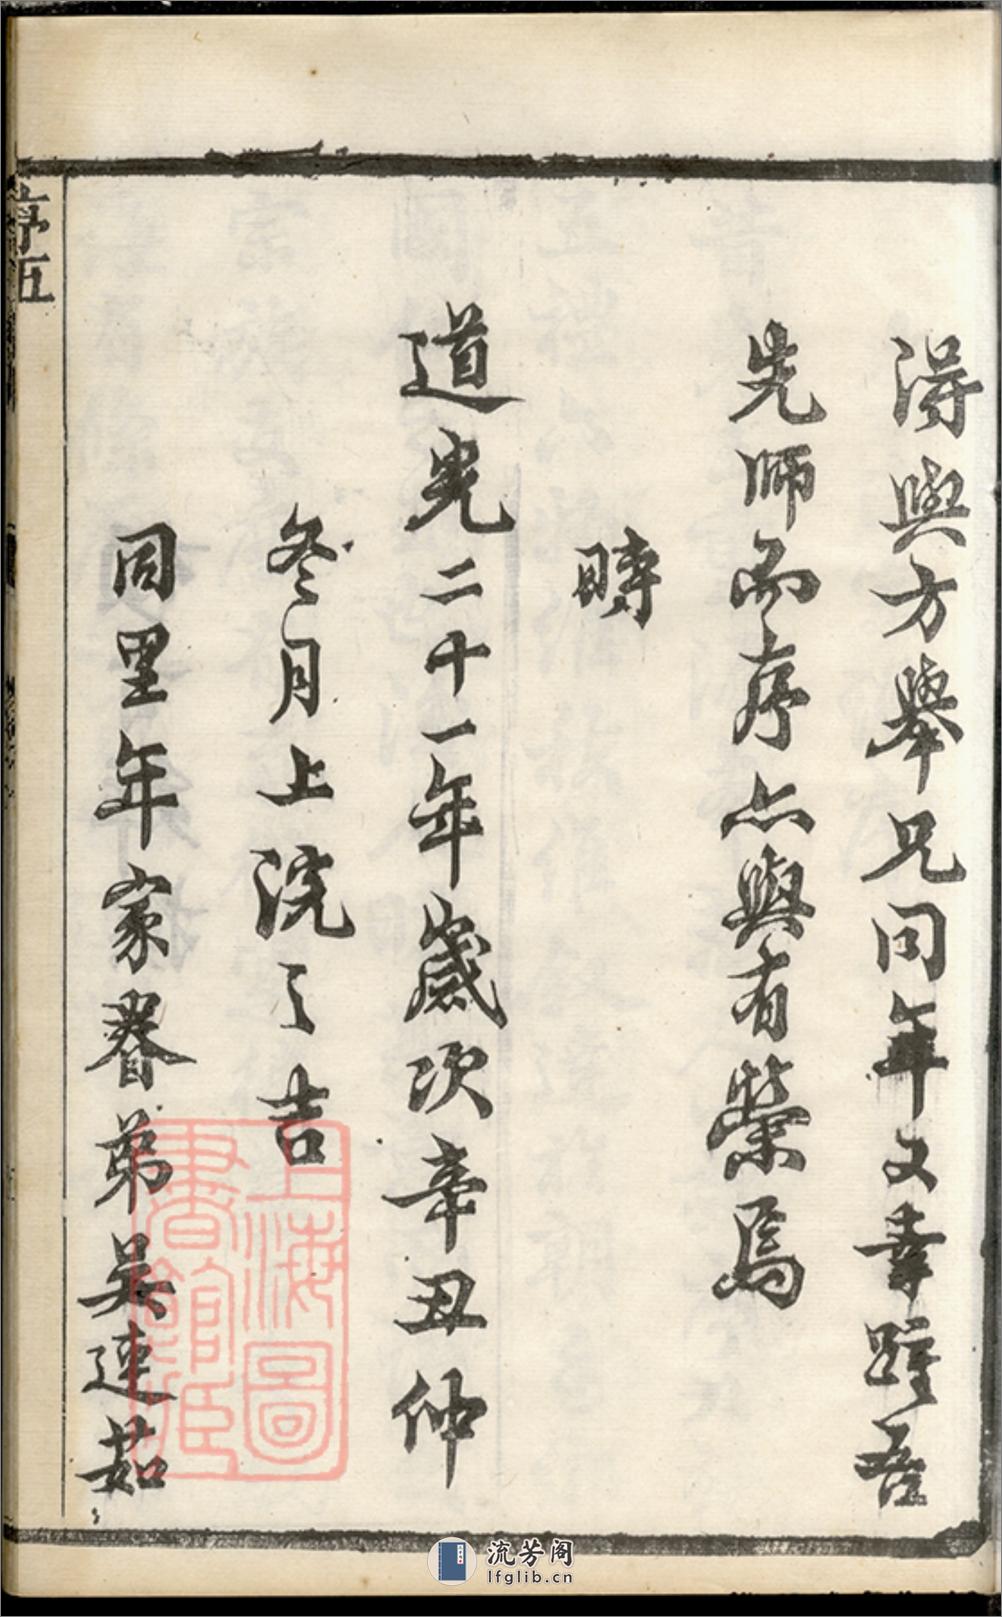 得與方舉兄同年又幸踵吾
先師而序亦與有榮焉
時
道光二十一年歲次辛丑仲
冬月上浣之吉
同里年家眷弟吳連茹
序五
上海圖書館藏
流芳阁
lfglib.cn